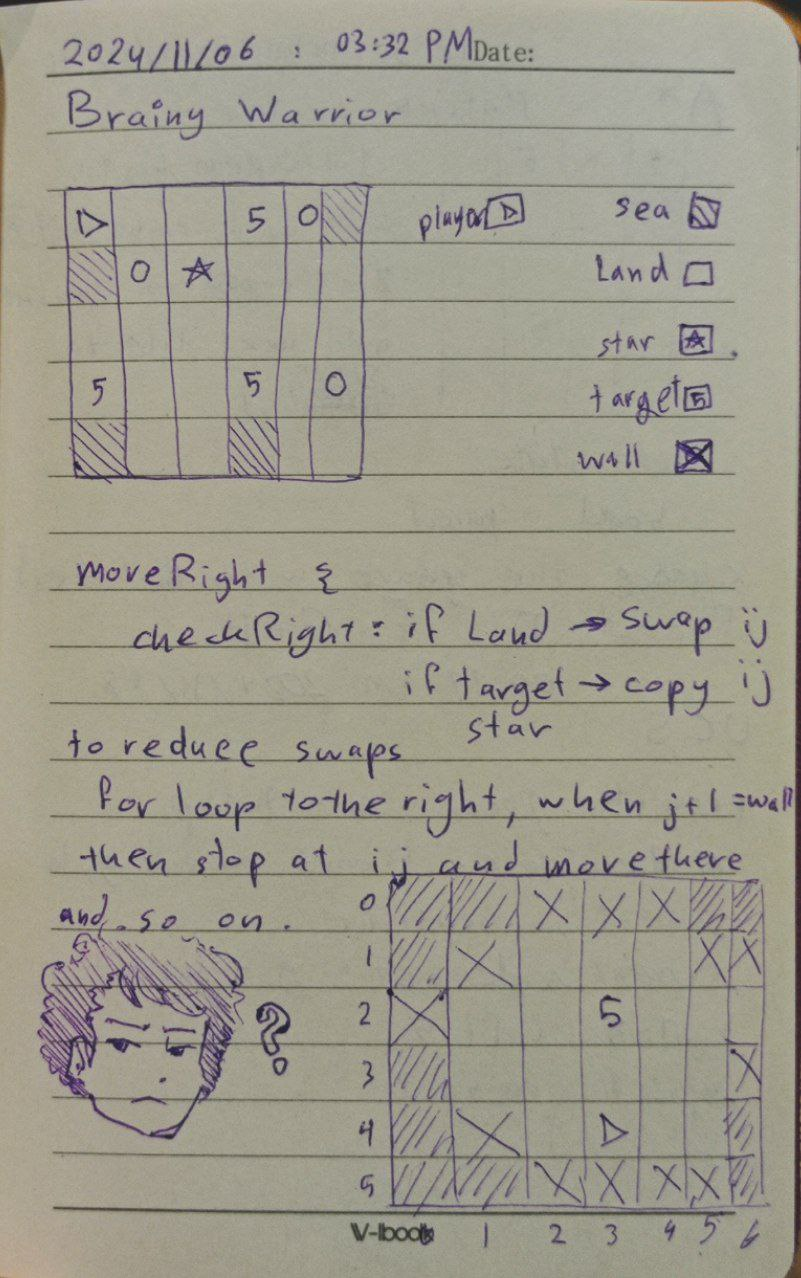 2024/11/06 : 03:32 PM Date:
Brainy Warrior
5 0
player
sea
0
Land
star
5 5 0
target 5
wall
moveRight {
checkRight : if Land → swap ij
if target → copy ij
star
to reduce swaps
for loop to the right, when j+1 = wall
then stop at ij and move there
and so on.
0
1
2 5
?
3
4
5
0 1 2 3 4 5 6
V-lbook